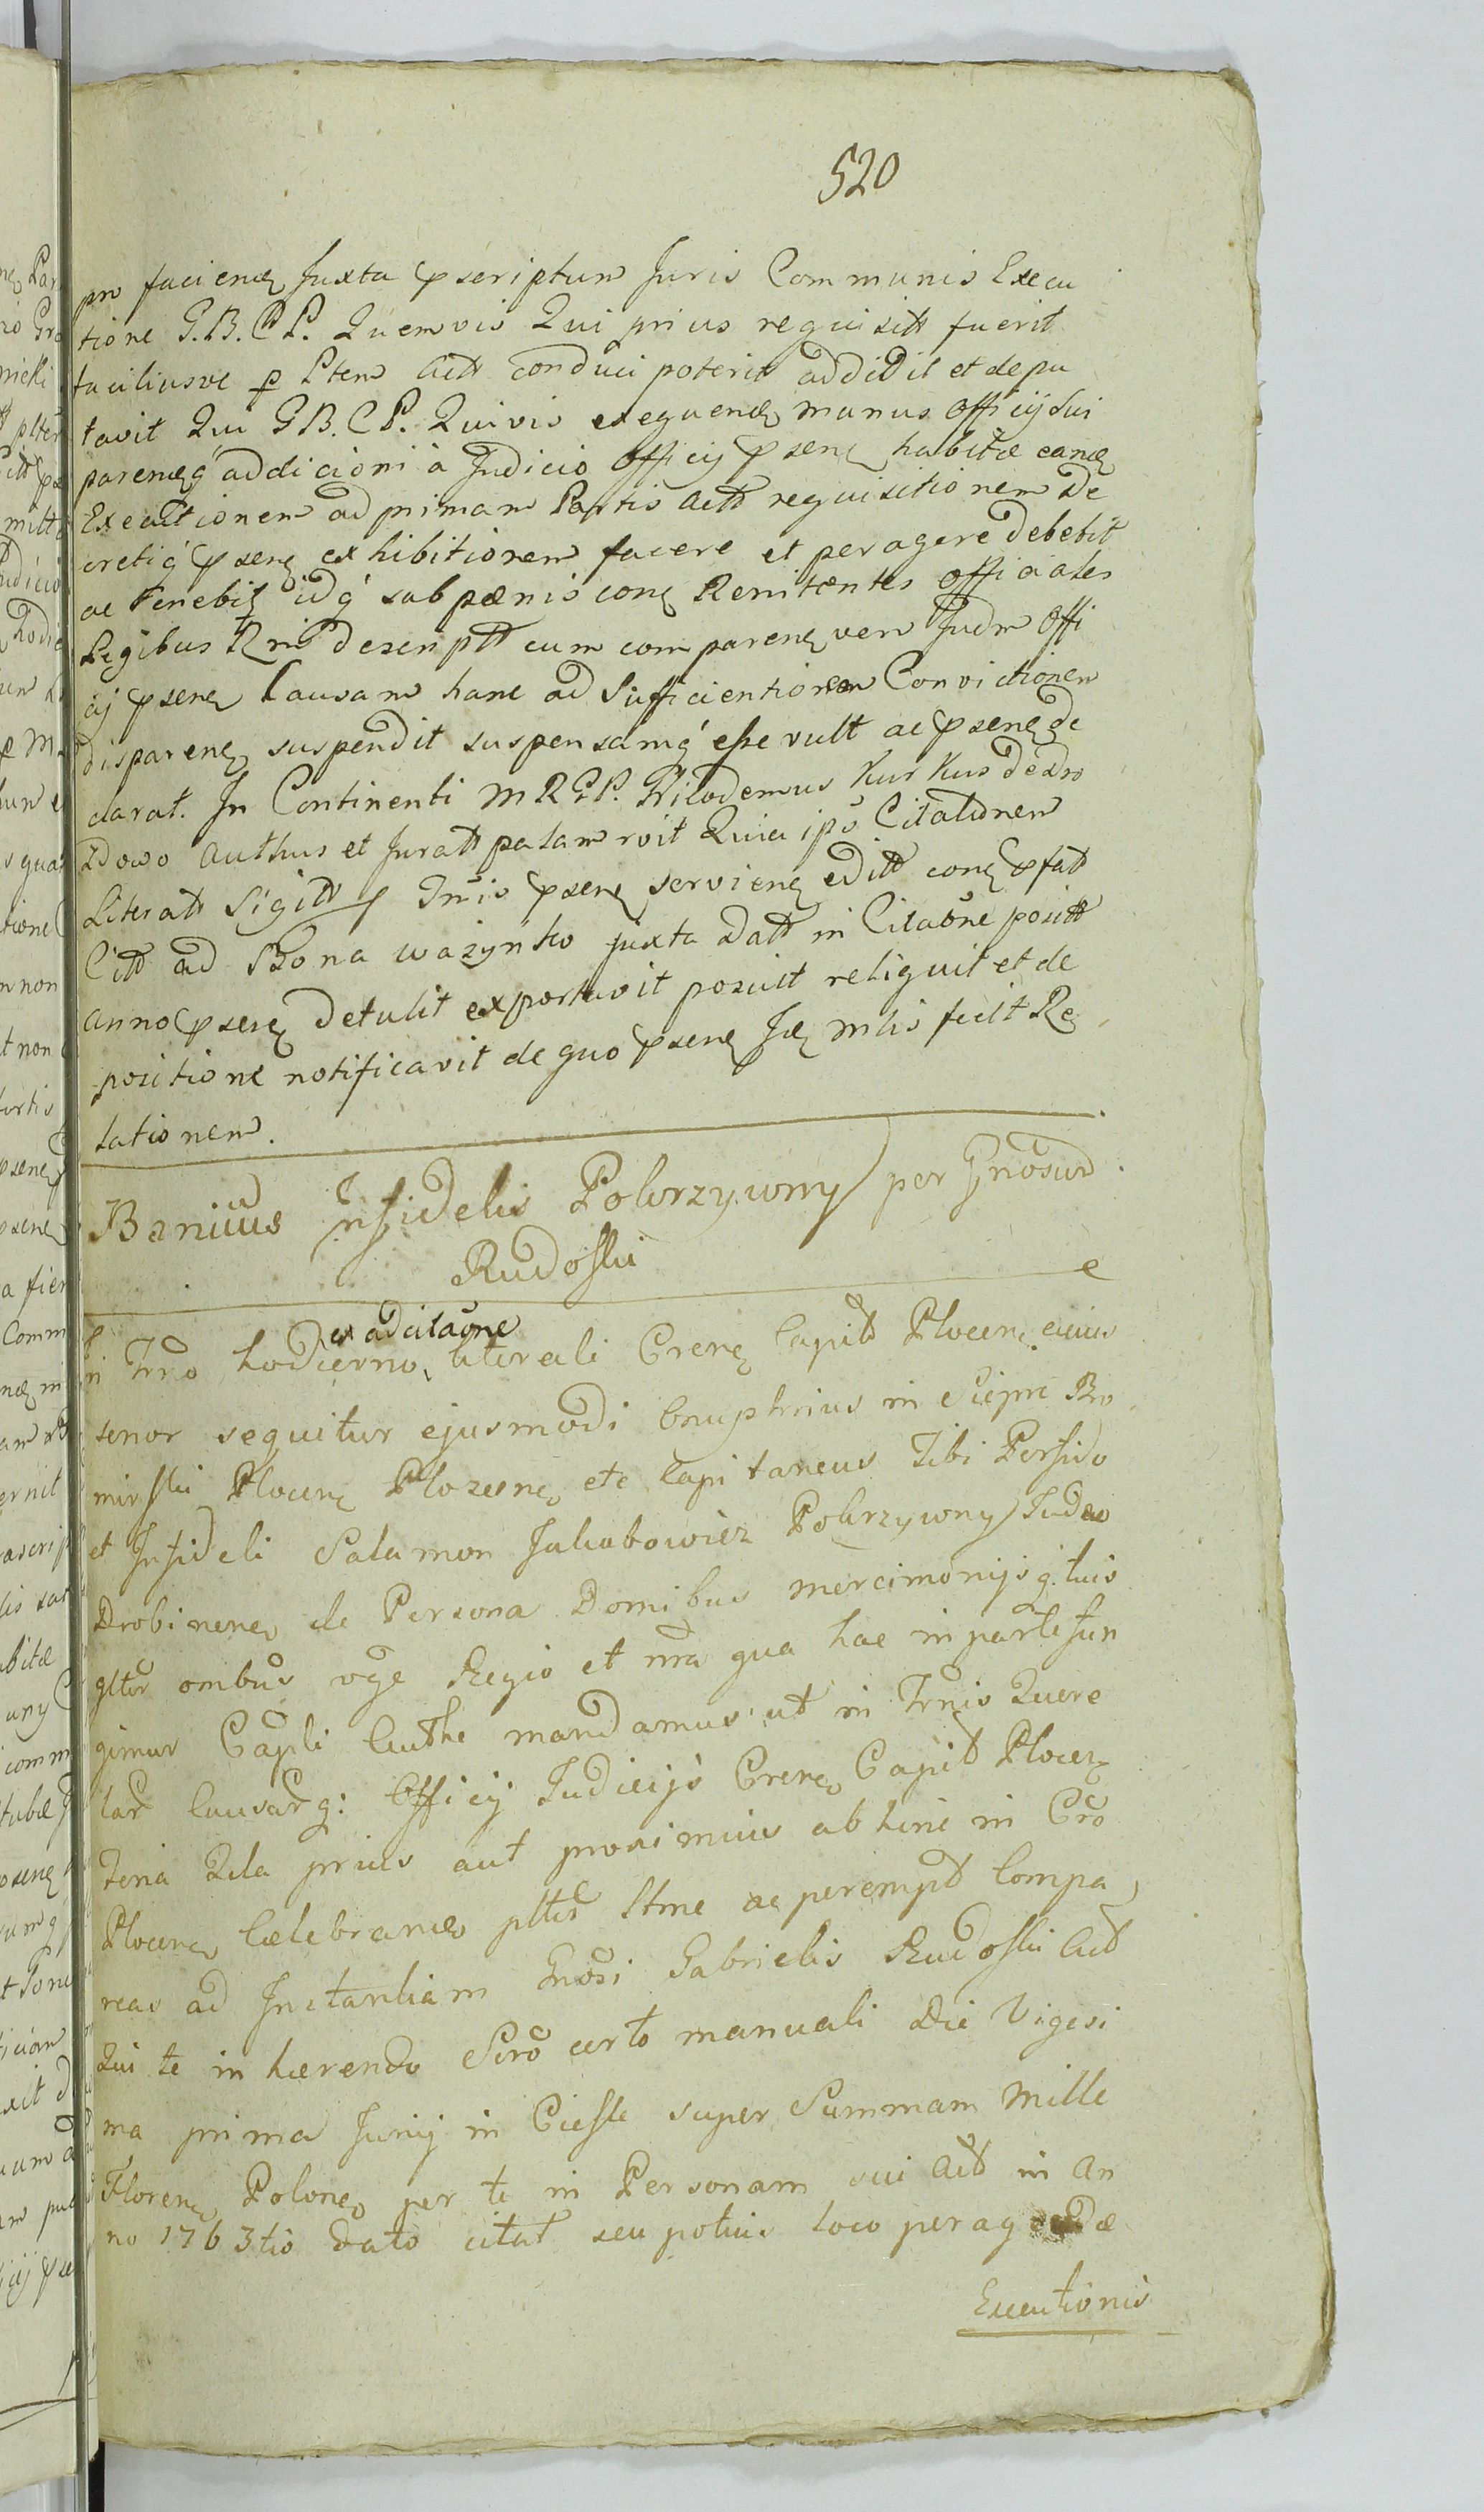 520
pro faciend Juxta pscriptum Juris Communis Execu
tione G.B.C.P. Quemvis Qui prius requisitt fuerit
faciliusve p Ptem Actt conduci poterit addidit et depu
tavit Qui G B. C P. Quivis exequend munus officij sui
parendq addicioni à Judicio Officij psen habitæ eand
Executionem ad primam Partis Actt requisitionem De
cretiq psen exhibitionem facere et peragere debebit
ac tenebit idq sub pænis con Renitentes officiales
Legibus Rni descriptt cum comparen vero Judm Offi
cij psen Causam hanc ad sufficientiorem Convictionem
disparen suspendit suspensamq esse vult ac psen de
clarat. In Continenti M R G P. Nicodemus Kurkus de
zdowo Authus et Juratt palam roit Quia ipse Citationem
Literatt Sigitt Tnis psen servien editt con pfatt
Citt ad Bona Wazynko juxta Datt in Citaône positt
Anno psen detulit exportavit posuit reliquit et de
positione notificavit de quo psen mlis fecit Re
lationem.
Banitus Infidelis Pokrzywny per Gnosum
Rudoski
In Trno hodierno ex adcitaône literali Cren Capit Plocen cuius
tenor sequitur ejusmodi Onuphrius in Siepre Bro
mirski Plocen Plozesne etc Capitaneus Tibi Perfido
et Infideli Salamon Jakubowicz Pokrzywny Judæo
Drobinen de Persona Domibus mercimonijsq tuis
gltr ombus vge Regio et nra qua hac in parte fun
gimur Capli Authe mandamus ut in Trnis Quere
lar Causarq: Officij Judicijs Cren Capit Plocen
Feria 2da prius aut proximius abhinc in Cro
Plocen Celebrand pltr Ptme ac perempt Compa
reas ad Instantiam Gnosi Gabrielis Rudoski Act
Qui te inhærendo Scro certo manuali Die Vigesi
ma prima Junij in Ciesle super Summam Mille
Floren Polon per te in Personam sui Act in An
no 1763tio dato citat seu potius loco peragendæ
Executionis